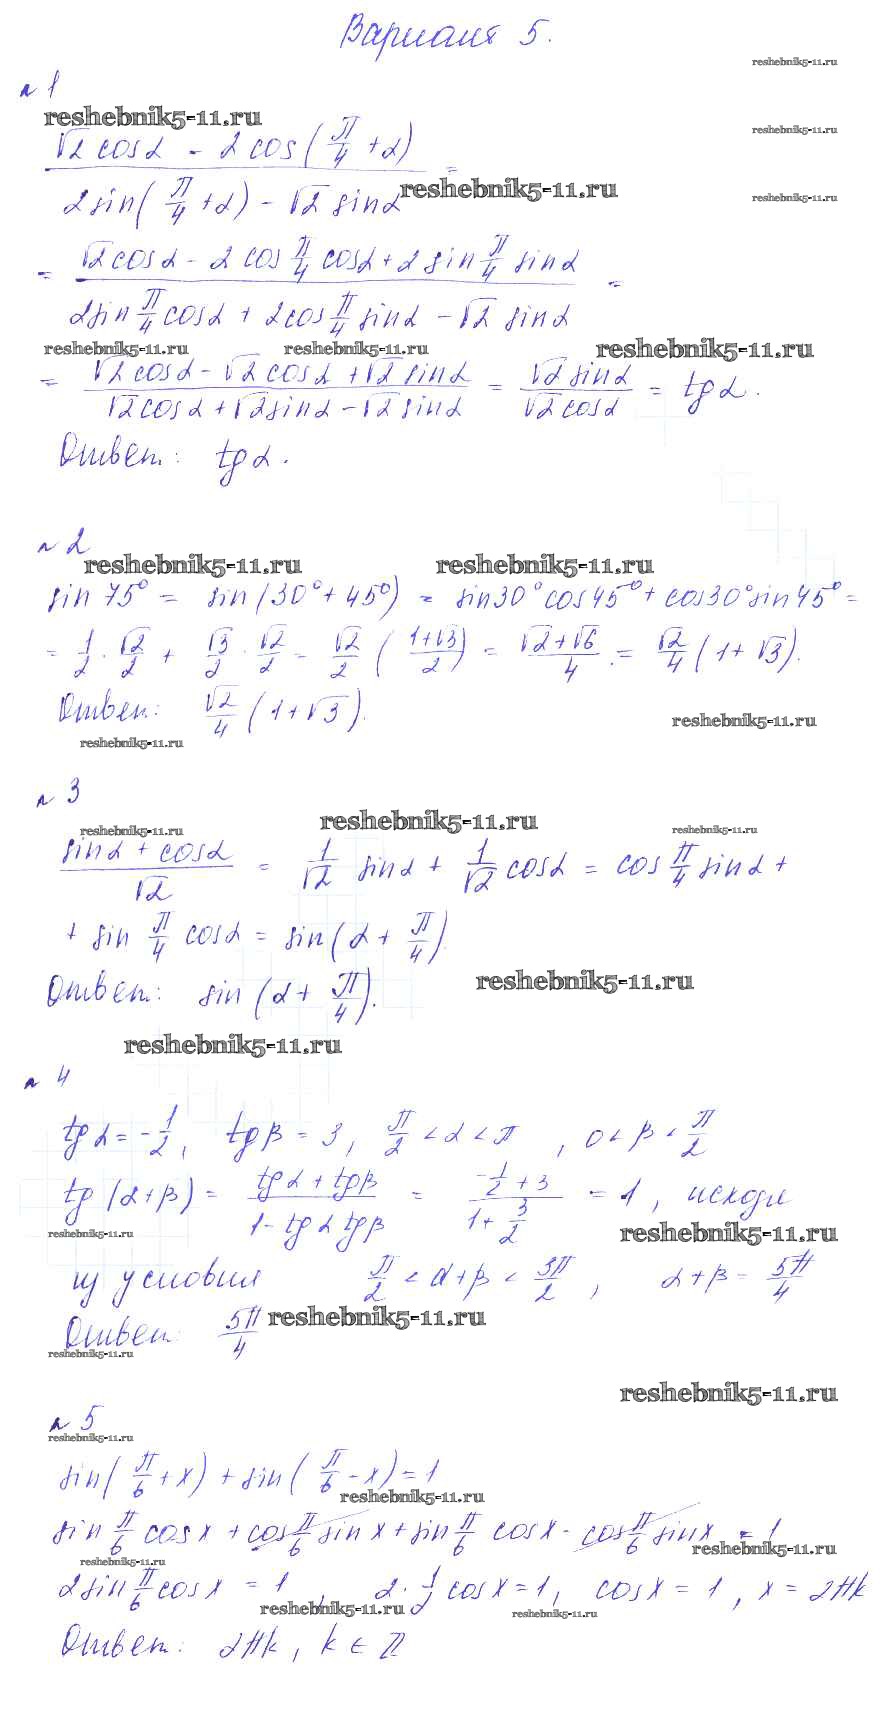 Вариант 5.
reshebnik5-11.ru
№ 1
reshebnik5-11.ru
reshebnik5-11.ru
(√2 cosα - 2 cos(π/4 + α)) / (2 sin(π/4 + α) - √2 sinα) =
reshebnik5-11.ru
reshebnik5-11.ru
= (√2 cosα - 2 cos π/4 cosα + 2 sin π/4 sinα) / (2 sin π/4 cosα + 2 cos π/4 sinα - √2 sinα) =
reshebnik5-11.ru reshebnik5-11.ru reshebnik5-11.ru
= (√2 cosα - √2 cosα + √2 sinα) / (√2 cosα + √2 sinα - √2 sinα) = (√2 sinα) / (√2 cosα) = tgα.
Ответ: tgα.
№ 2
reshebnik5-11.ru reshebnik5-11.ru
sin 75° = sin(30° + 45°) = sin30° cos45° + cos30° sin45° =
= 1/2 · √2/2 + √3/2 · √2/2 = √2/2 ((1+√3)/2) = (√2+√6)/4 = √2/4 (1+√3).
Ответ: √2/4 (1+√3).
reshebnik5-11.ru
reshebnik5-11.ru
№ 3
reshebnik5-11.ru
reshebnik5-11.ru reshebnik5-11.ru
(sinα + cosα)/√2 = 1/√2 sinα + 1/√2 cosα = cos π/4 sinα +
+ sin π/4 cosα = sin(α + π/4).
Ответ: sin(α + π/4).
reshebnik5-11.ru
reshebnik5-11.ru
№ 4
tgα = -1/2, tgβ = 3, π/2 < α < π, 0 < β < π/2
tg(α+β) = (tgα + tgβ)/(1 - tgα tgβ) = (-1/2 + 3)/(1 + 3/2) = 1, исходя
reshebnik5-11.ru reshebnik5-11.ru
из условия π/2 < α+β < 3π/2, α+β = 5π/4
Ответ: 5π/4
reshebnik5-11.ru
reshebnik5-11.ru
reshebnik5-11.ru
№ 5
reshebnik5-11.ru
sin(π/6 + x) + sin(π/6 - x) = 1
reshebnik5-11.ru
sin π/6 cos x + cos π/6 sin x + sin π/6 cos x - cos π/6 sin x = 1
reshebnik5-11.ru
reshebnik5-11.ru
2 sin π/6 cos x = 1, 2 · 1/2 cos x = 1, cos x = 1, x = 2πk
reshebnik5-11.ru reshebnik5-11.ru
Ответ: 2πk, k ∈ Z